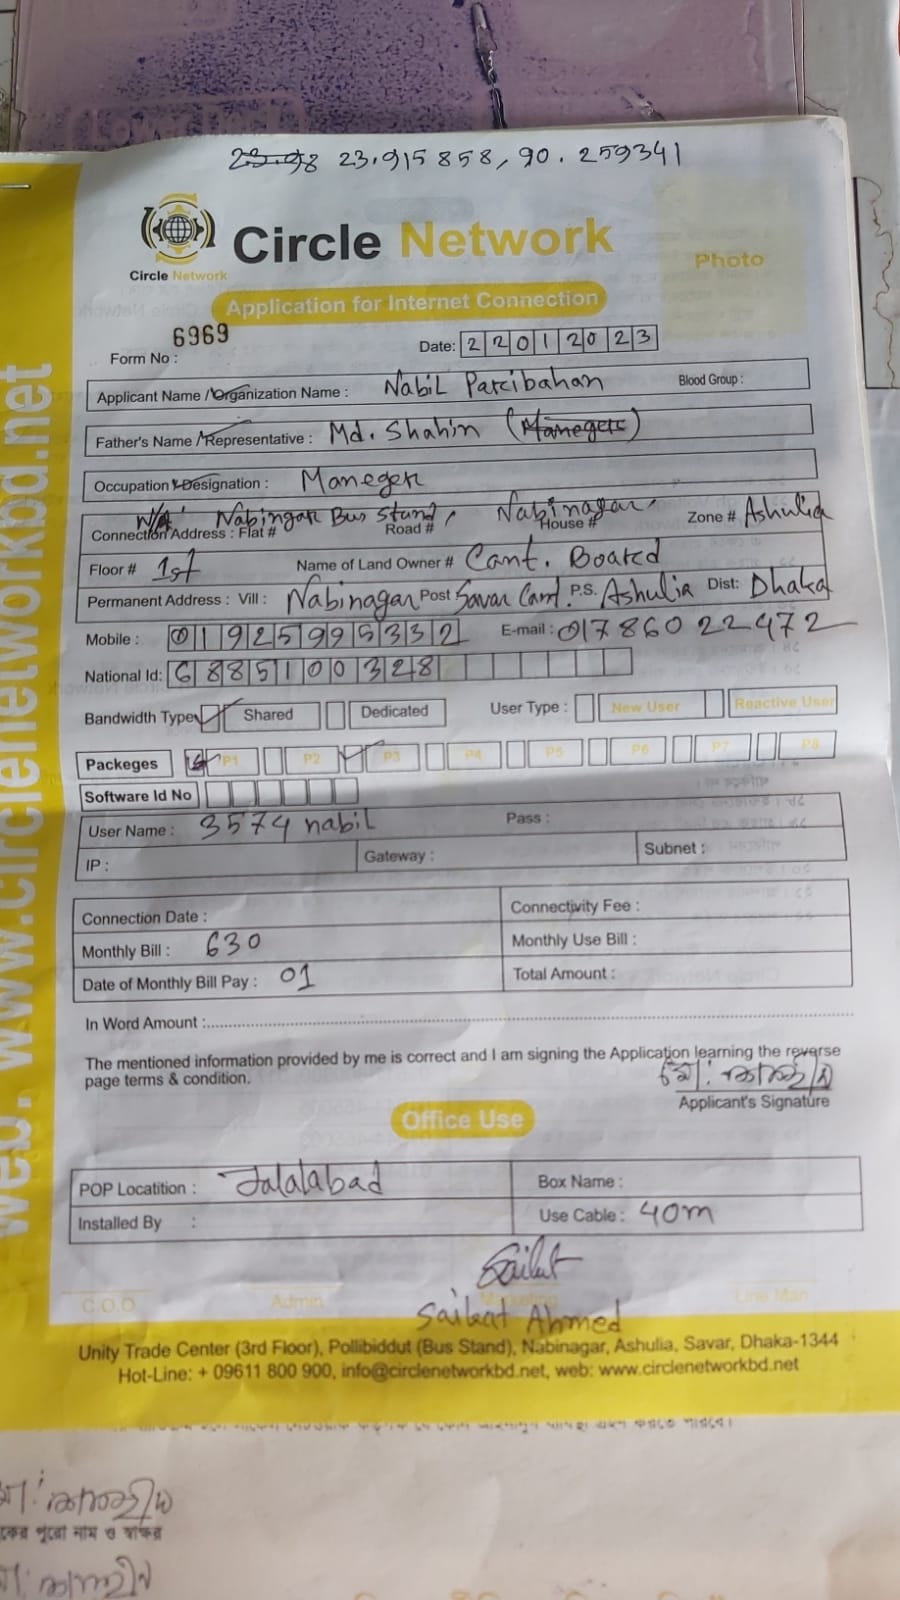 23.98 23.915858, 90.259341
Circle Network
Circle Network
Photo
Application for Internet Connection
6969
Form No :
Date: 22012023
Applicant Name / Organization Name : Nabil Paribahan Blood Group :
Father's Name / Representative : Md. Shahin (Maneger)
Occupation & Designation : Maneger
Connection Address : Flat # N/A Nabingar Bus Stand, Road # Nabinagar, House # Zone # Ashulia
Floor # 1st Name of Land Owner # Cant. Board
Permanent Address : Vill : Nabinagar Post Savar Cant. P.S. Ashulia Dist: Dhaka
Mobile : 01925995332 E-mail : 01786022472
National Id: 6885100328
Bandwidth Type Shared Dedicated User Type : New User Reactive User
Packeges P1 P2 P3 P4 P5 P6 P7 P8
Software Id No
User Name : 3574 nabil Pass :
IP : Gateway : Subnet :
Connection Date : Connectivity Fee :
Monthly Bill : 630 Monthly Use Bill :
Date of Monthly Bill Pay : 01 Total Amount :
In Word Amount :
The mentioned information provided by me is correct and I am signing the Application learning the reverse
page terms & condition.
মো: শাহীন
Applicant's Signature
Office Use
POP Locatition : Jalalabad Box Name :
Installed By : Use Cable : 40m
Saikat
C.O.O Admin Marketing Line Man
Saikat Ahmed
Unity Trade Center (3rd Floor), Pollibiddut (Bus Stand), Nabinagar, Ashulia, Savar, Dhaka-1344
Hot-Line: + 09611 800 900, info@circlenetworkbd.net, web: www.circlenetworkbd.net
web: www.circlenetworkbd.net
মো: শাহীন
পুরো নাম ও স্বাক্ষর
মো: শাহীন